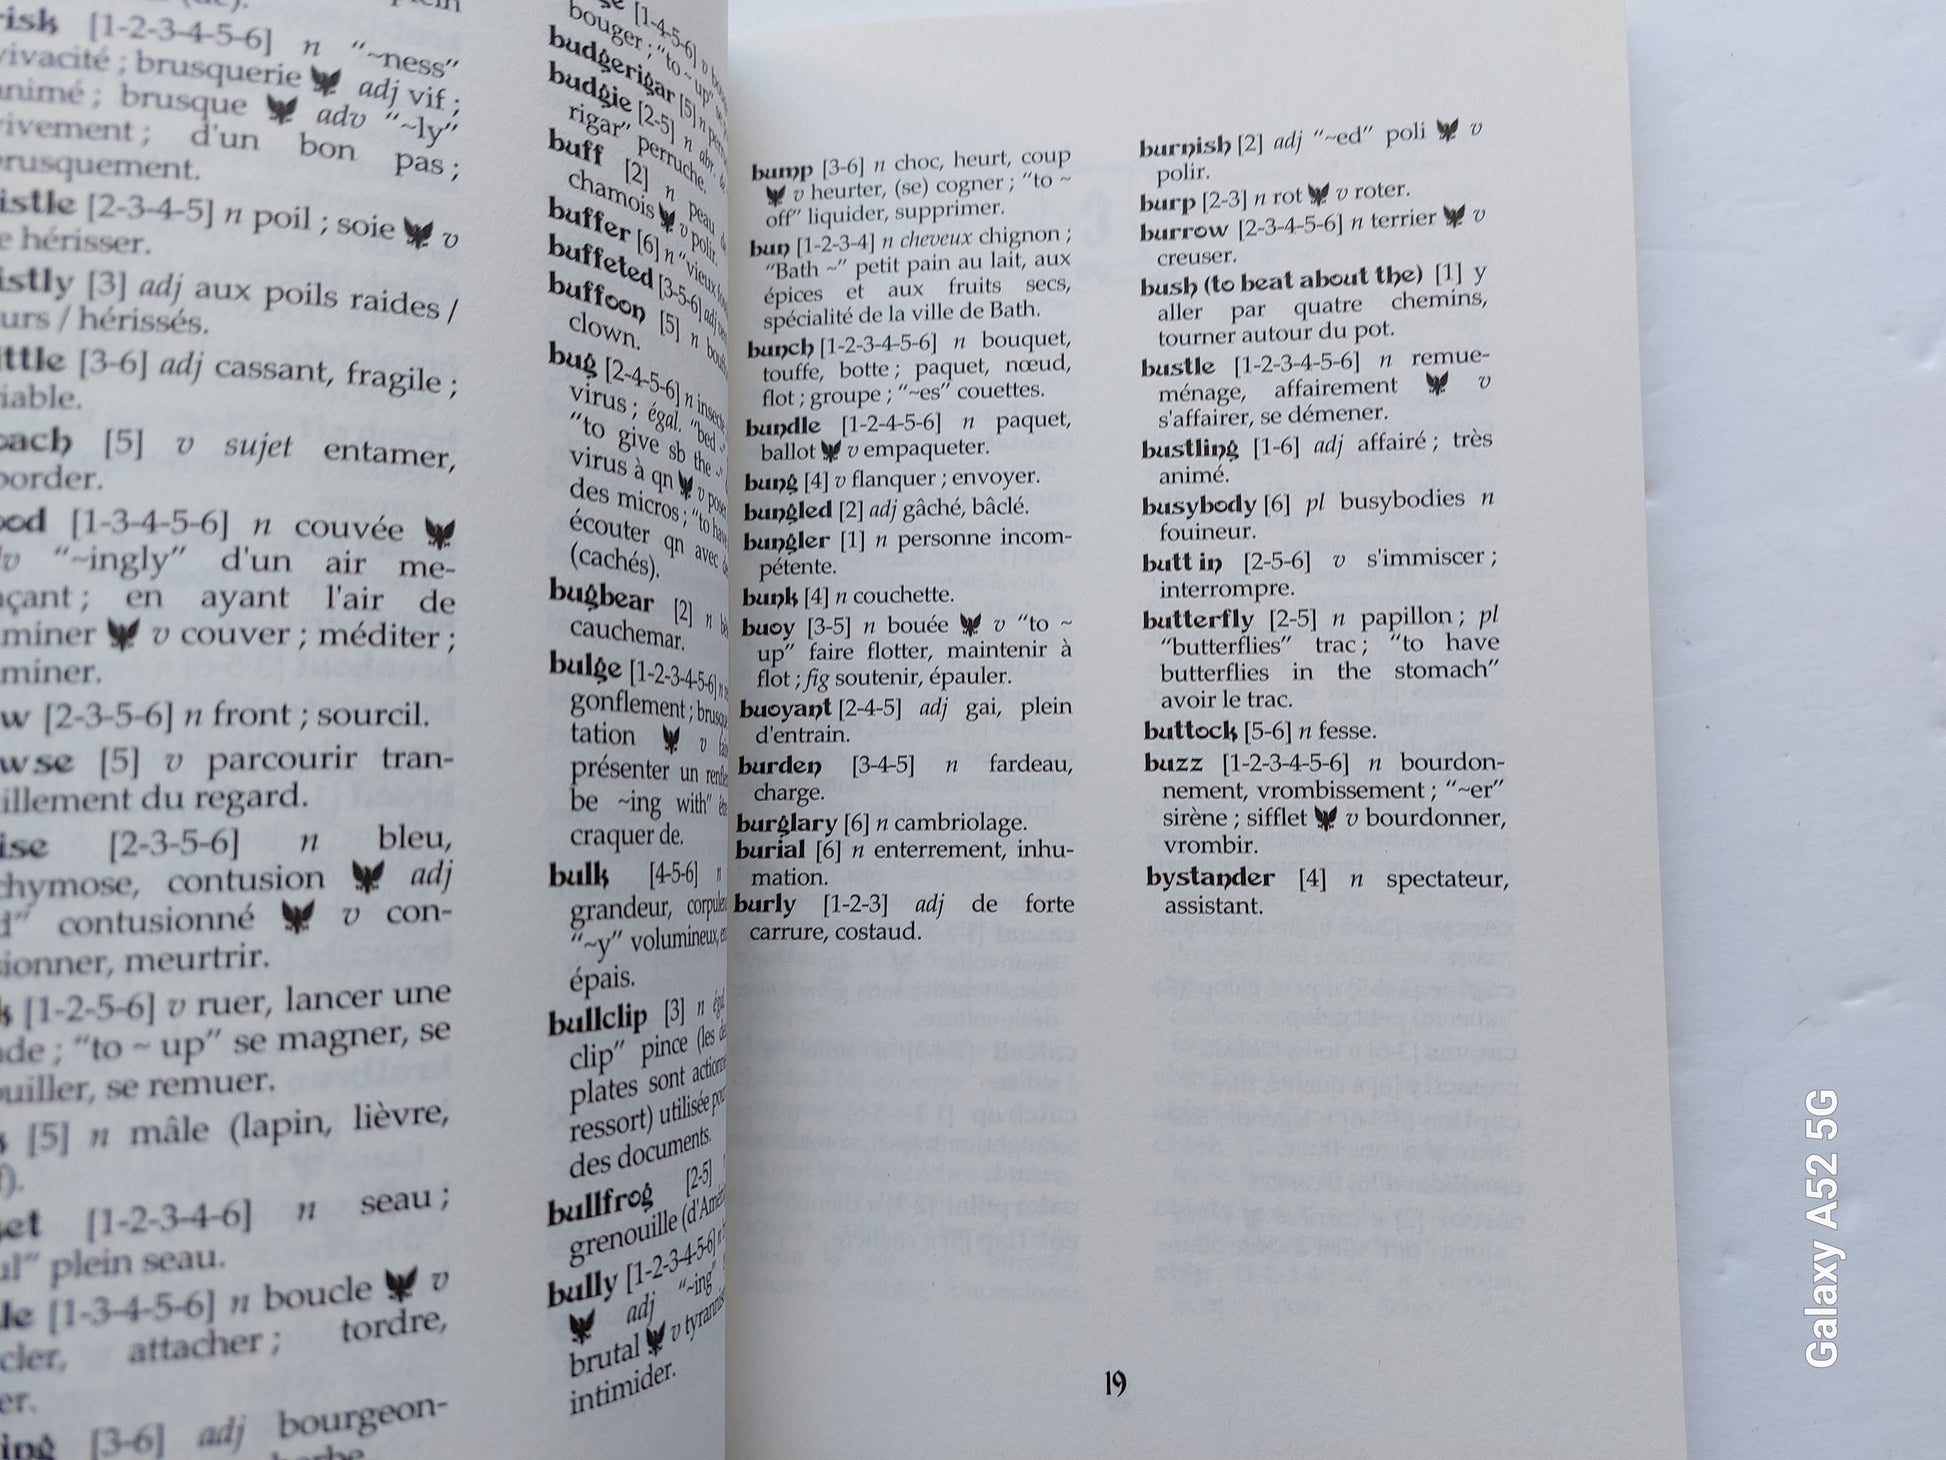 risk [1-2-3-4-5-6] n “~ness”
vivacité ; brusquerie adj vif ;
animé ; brusque adv “~ly”
vivement ; d'un bon pas ;
brusquement.
istle [2-3-4-5] n poil ; soie v
e hérisser.
istly [3] adj aux poils raides /
urs / hérissés.
ittle [3-6] adj cassant, fragile ;
iable.
oach [5] v sujet entamer,
border.
ood [1-3-4-5-6] n couvée
“~ingly” d'un air me-
açant ; en ayant l'air de
miner v couver ; méditer ;
miner.
w [2-3-5-6] n front ; sourcil.
wse [5] v parcourir tran-
illement du regard.
ise [2-3-5-6] n bleu,
chymose, contusion adj
d” contusionné v con-
sionner, meurtrir.
[1-2-5-6] v ruer, lancer une
ade ; “to ~ up” se magner, se
ouiller, se remuer.
[5] n mâle (lapin, lièvre,
f).
ket [1-2-3-4-6] n seau ;
ul” plein seau.
le [1-3-4-5-6] n boucle v
cler, attacher ; tordre,
er.
ing [3-6] adj bourgeon-
[1-4-5-6] v
bouger ; “to ~ up” se
budgerigar [5] n
budgie [2-5] n abr. de
rigar” perruche.
buff [2] n peau
chamois v polir.
buffer [6] n “vieux
buffeted [3-5-6] adj
buffoon [5] n
clown.
bug [2-4-5-6] n insecte
virus ; égal. “bed
“to give sb the
virus à qn v poser
des micros ; “to have
écouter qn avec
(cachés).
bugbear [2] n
cauchemar.
bulge [1-2-3-4-5-6] n
gonflement ; brusque
tation v
présenter un
be ~ing with”
craquer de.
bulk [4-5-6] n
grandeur,
“~y” volumineux,
épais.
bullclip [3] n
clip” pince (les
plates sont
ressort) utilisée
des documents.
bullfrog [2-5]
grenouille
bully [1-2-3-4-5-6]
adj “~ing”
brutal v
intimider.
bump [3-6] n choc, heurt, coup
v heurter, (se) cogner ; “to ~
off” liquider, supprimer.
bun [1-2-3-4] n cheveux chignon ;
“Bath ~” petit pain au lait, aux
épices et aux fruits secs,
spécialité de la ville de Bath.
bunch [1-2-3-4-5-6] n bouquet,
touffe, botte ; paquet, nœud,
flot ; groupe ; “~es” couettes.
bundle [1-2-4-5-6] n paquet,
ballot v empaqueter.
bung [4] v flanquer ; envoyer.
bungled [2] adj gâché, bâclé.
bungler [1] n personne incom-
pétente.
bunk [4] n couchette.
buoy [3-5] n bouée v “to ~
up” faire flotter, maintenir à
flot ; fig soutenir, épauler.
buoyant [2-4-5] adj gai, plein
d'entrain.
burden [3-4-5] n fardeau,
charge.
burglary [6] n cambriolage.
burial [6] n enterrement, inhu-
mation.
burly [1-2-3] adj de forte
carrure, costaud.
burnish [2] adj “~ed” poli v
polir.
burp [2-3] n rot v roter.
burrow [2-3-4-5-6] n terrier v
creuser.
bush (to beat about the) [1] y
aller par quatre chemins,
tourner autour du pot.
bustle [1-2-3-4-5-6] n remue-
ménage, affairement v
s'affairer, se démener.
bustling [1-6] adj affairé ; très
animé.
busybody [6] pl busybodies n
fouineur.
butt in [2-5-6] v s'immiscer ;
interrompre.
butterfly [2-5] n papillon ; pl
“butterflies” trac ; “to have
butterflies in the stomach”
avoir le trac.
buttock [5-6] n fesse.
buzz [1-2-3-4-5-6] n bourdon-
nement, vrombissement ; “~er”
sirène ; sifflet v bourdonner,
vrombir.
bystander [4] n spectateur,
assistant.
19
Galaxy A52 5G